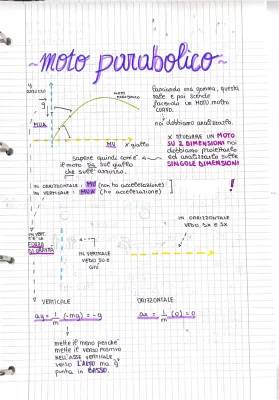 ~moto parabolico~
y
azzurro
g
MUA
MU
x giallo
MOTO
PARABOLICO
lanciando una gomma, questa
sale e poi scende
facendo un MOTO molto
CURVO.
noi dobbiamo analizzarlo.
x STUDIARE UN MOTO
SU 2 DIMENSIONI noi
dobbiamo proiettarlo
ed analizzarlo sulle
SINGOLE DIMENSIONI
!
sapere quindi com'è
il moto sia sul giallo
che sull'azzurro.
IN ORIZZONTALE : MU (non ho accelerazione)
IN VERTICALE : MUA (ho accelerazione)
IN VERT.
C'È LA
FORZA
DI GRAVITÀ
IN VERTICALE
VEDO SU E
GIÙ
IN ORIZZONTALE
VEDO SX E DX
VERTICALE
ORIZZONTALE
ay = 1/m (-mg) = -g
ax = 1/m (0) = 0
mette il meno perché
mette il verso positivo
NELL'ASSE VERTICALE
verso L'ALTO ma g
punta in BASSO.